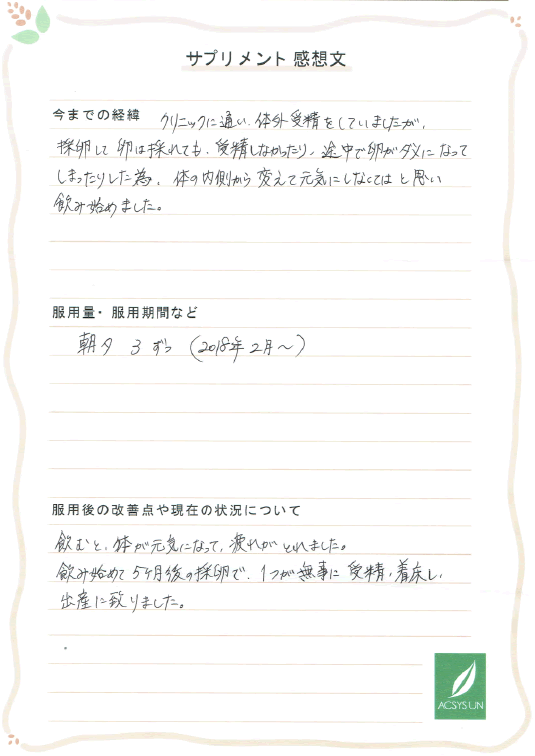 サプリメント 感想文
今までの経緯 クリニックに通い、体外受精をしていましたが、
採卵して卵は採れても、受精しなかったり、途中で卵がダメになって
しまったりした為、体の内側から変えて元気にしなくてはと思い
飲み始めました。
服用量・服用期間など
朝夕 3ずつ (2018年2月〜)
服用後の改善点や現在の状況について
飲むと、体が元気になって、疲れがとれました。
飲み始めて5ヶ月後の採卵で、1つが無事に受精、着床し、
出産に致りました。
ACSYSUN